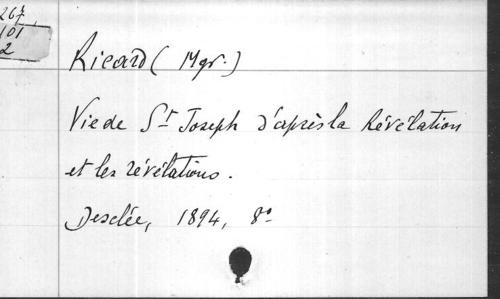 267
101
2
Ricard (Mgr.)
Vie de St Joseph d'après la Révélation
et les révélations.
Desclée, 1894, 8°